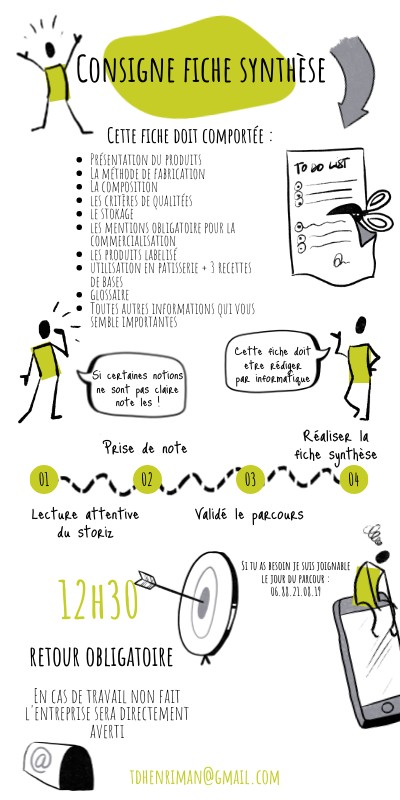 Consigne fiche synthèse
Cette fiche doit comportée :
Présentation du produits
La méthode de fabrication
La composition
les critères de qualitées
le stokage
les mentions obligatoire pour la
commercialisation
les produits labelisé
utilisation en patisserie + 3 recettes
de bases
glossaire
Toutes autres informations qui vous
semble importantes
TO DO LIST
Si certaines notions
ne sont pas claire
note les !
Cette fiche doit
etre rédiger
par informatique
Prise de note
Réaliser la
fiche synthèse
01
02
03
04
Lecture attentive
du storiz
Validé le parcours
12h30
Si tu as besoin je suis joignable
le jour du parcour :
06.88.21.08.19
retour obligatoire
En cas de travail non fait
l'entreprise sera directement
averti
@
tdhenriman@gmail.com